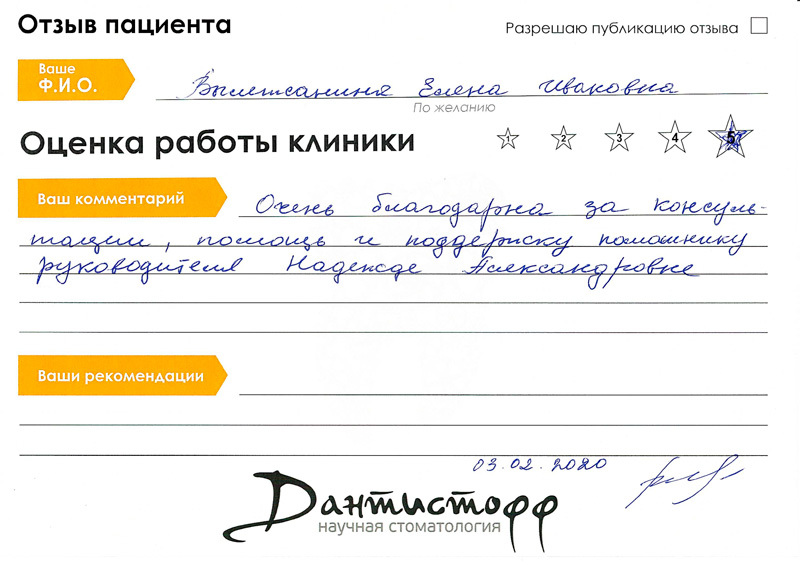 Отзыв пациента
Разрешаю публикацию отзыва
Ваше
Ф.И.О.
Елена Ивановна
По желанию
Оценка работы клиники
1 2 3 4 5
Ваш комментарий
Очень благодарна за консуль-
тации, помощь и поддержку помошнику
руководителя Надежде Александровне
Ваши рекомендации
03.02.2020
Дантистофф
научная стоматология